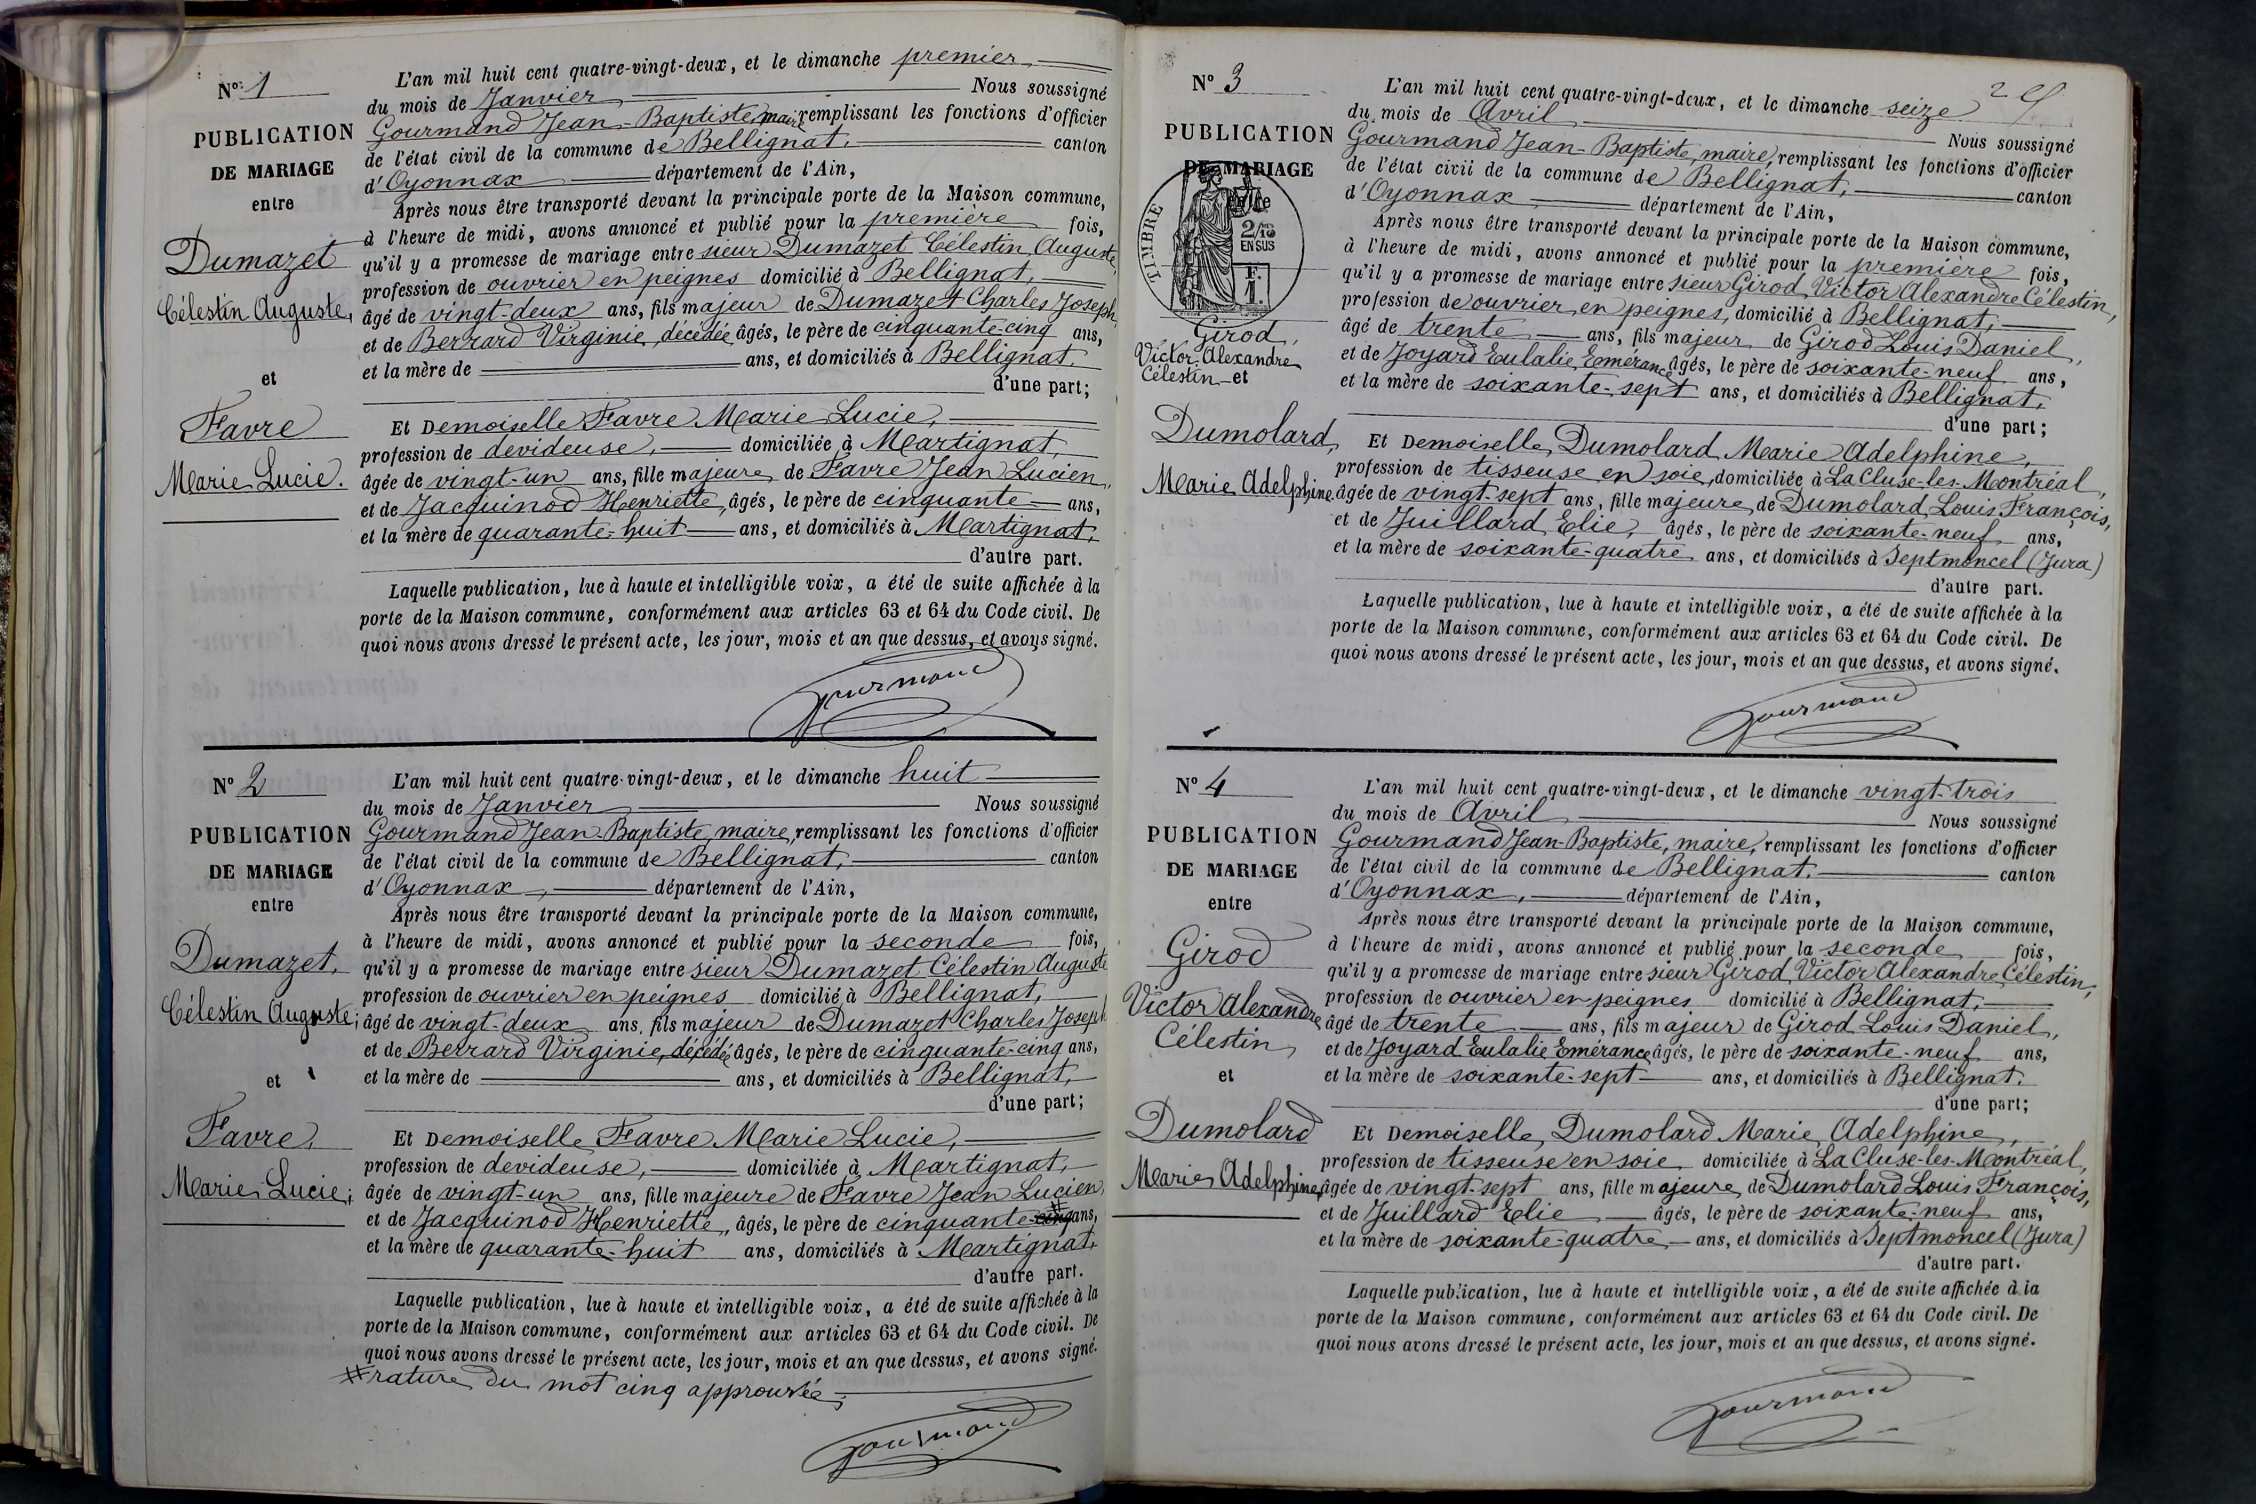 N° 1
PUBLICATION
DE MARIAGE
entre
Dumazet
Célestin Auguste,
et
Favre
Marie Lucie.
L'an mil huit cent quatre-vingt-deux, et le dimanche premier
du mois de Janvier Nous soussigné
Gourmand Jean-Baptiste maire, remplissant les fonctions d'officier
de l'état civil de la commune de Bellignat, canton
d'Oyonnax département de l'Ain,
Après nous être transporté devant la principale porte de la Maison commune,
à l'heure de midi, avons annoncé et publié pour la première fois,
qu'il y a promesse de mariage entre sieur Dumazet Célestin Auguste,
profession de ouvrier en peignes domicilié à Bellignat,
âgé de vingt-deux ans, fils majeur de Dumazet Charles Joseph,
et de Berrard Virginie, décédée âgés, le père de cinquante-cinq ans,
et la mère de ans, et domiciliés à Bellignat.
d'une part;
Et Demoiselle Favre Marie Lucie,
profession de devideuse, domiciliée à Martignat,
âgée de vingt-un ans, fille majeure de Favre Jean Lucien,
et de Jacquinod Henriette, âgés, le père de cinquante ans,
et la mère de quarante-huit ans, et domiciliés à Martignat,
d'autre part.
Laquelle publication, lue à haute et intelligible voix, a été de suite affichée à la
porte de la Maison commune, conformément aux articles 63 et 64 du Code civil. De
quoi nous avons dressé le présent acte, les jour, mois et an que dessus, et avons signé.
Gourmand
N° 2
PUBLICATION
DE MARIAGE
entre
Dumazet,
Célestin Auguste;
et
Favre,
Marie Lucie;
L'an mil huit cent quatre-vingt-deux, et le dimanche huit
du mois de Janvier Nous soussigné
Gourmand Jean-Baptiste, maire, remplissant les fonctions d'officier
de l'état civil de la commune de Bellignat, canton
d'Oyonnax, département de l'Ain,
Après nous être transporté devant la principale porte de la Maison commune,
à l'heure de midi, avons annoncé et publié pour la seconde fois,
qu'il y a promesse de mariage entre sieur Dumazet Célestin Auguste
profession de ouvrier en peignes domicilié à Bellignat,
âgé de vingt-deux ans, fils majeur de Dumazet Charles Joseph
et de Berrard Virginie, décédée âgés, le père de cinquante-cinq ans,
et la mère de ans, et domiciliés à Bellignat,
d'une part;
Et Demoiselle Favre Marie Lucie,
profession de devideuse, domiciliée à Martignat,
âgée de vingt-un ans, fille majeure de Favre Jean Lucien,
et de Jacquinod Henriette, âgés, le père de cinquante-cinq ans,
et la mère de quarante-huit ans, domiciliés à Martignat,
d'autre part.
Laquelle publication, lue à haute et intelligible voix, a été de suite affichée à la
porte de la Maison commune, conformément aux articles 63 et 64 du Code civil. De
quoi nous avons dressé le présent acte, les jour, mois et an que dessus, et avons signé.
#rature du mot cinq approuvée;
Gourmand
2
N° 3
PUBLICATION
DE MARIAGE
TIMBRE
2/10
EN SUS
F.
1.
Girod,
Victor-Alexandre
Célestin et
Dumolard,
Marie Adelphine
L'an mil huit cent quatre-vingt-deux, et le dimanche seize
du mois de Avril Nous soussigné
Gourmand Jean-Baptiste, maire, remplissant les fonctions d'officier
de l'état civil de la commune de Bellignat, canton
d'Oyonnax département de l'Ain,
Après nous être transporté devant la principale porte de la Maison commune,
à l'heure de midi, avons annoncé et publié pour la première fois,
qu'il y a promesse de mariage entre sieur Girod Victor Alexandre Célestin,
profession de ouvrier en peignes, domicilié à Bellignat,
âgé de trente ans, fils majeur de Girod Louis Daniel,
et de Joyard Eulalie Emérance âgés, le père de soixante-neuf ans,
et la mère de soixante-sept ans, et domiciliés à Bellignat,
d'une part;
Et Demoiselle, Dumolard Marie Adelphine,
profession de tisseuse en soie, domiciliée à La Cluse-les-Montréal,
âgée de vingt-sept ans, fille majeure, de Dumolard Louis François,
et de Juillard Elie, âgés, le père de soixante-neuf ans,
et la mère de soixante-quatre ans, et domiciliés à Septmoncel (Jura)
d'autre part.
Laquelle publication, lue à haute et intelligible voix, a été de suite affichée à la
porte de la Maison commune, conformément aux articles 63 et 64 du Code civil. De
quoi nous avons dressé le présent acte, les jour, mois et an que dessus, et avons signé.
Gourmand
N° 4
PUBLICATION
DE MARIAGE
entre
Girod
Victor Alexandre
Célestin,
et
Dumolard
Marie Adelphine,
L'an mil huit cent quatre-vingt-deux, et le dimanche vingt-trois
du mois de Avril Nous soussigné
Gourmand Jean-Baptiste, maire, remplissant les fonctions d'officier
de l'état civil de la commune de Bellignat. canton
d'Oyonnax, département de l'Ain,
Après nous être transporté devant la principale porte de la Maison commune,
à l'heure de midi, avons annoncé et publié pour la seconde fois,
qu'il y a promesse de mariage entre sieur Girod Victor Alexandre Célestin,
profession de ouvrier en peignes domicilié à Bellignat,
âgé de trente ans, fils majeur de Girod Louis Daniel,
et de Joyard Eulalie Emérance âgés, le père de soixante-neuf ans,
et la mère de soixante-sept ans, et domiciliés à Bellignat.
d'une part;
Et Demoiselle, Dumolard Marie Adelphine,
profession de tisseuse en soie domiciliée à La Cluse-les-Montréal,
âgée de vingt-sept ans, fille majeure, de Dumolard Louis François,
et de Juillard Elie âgés, le père de soixante-neuf ans,
et la mère de soixante-quatre ans, et domiciliés à Septmoncel (Jura)
d'autre part.
Laquelle publication, lue à haute et intelligible voix, a été de suite affichée à la
porte de la Maison commune, conformément aux articles 63 et 64 du Code civil. De
quoi nous avons dressé le présent acte, les jour, mois et an que dessus, et avons signé.
Gourmand